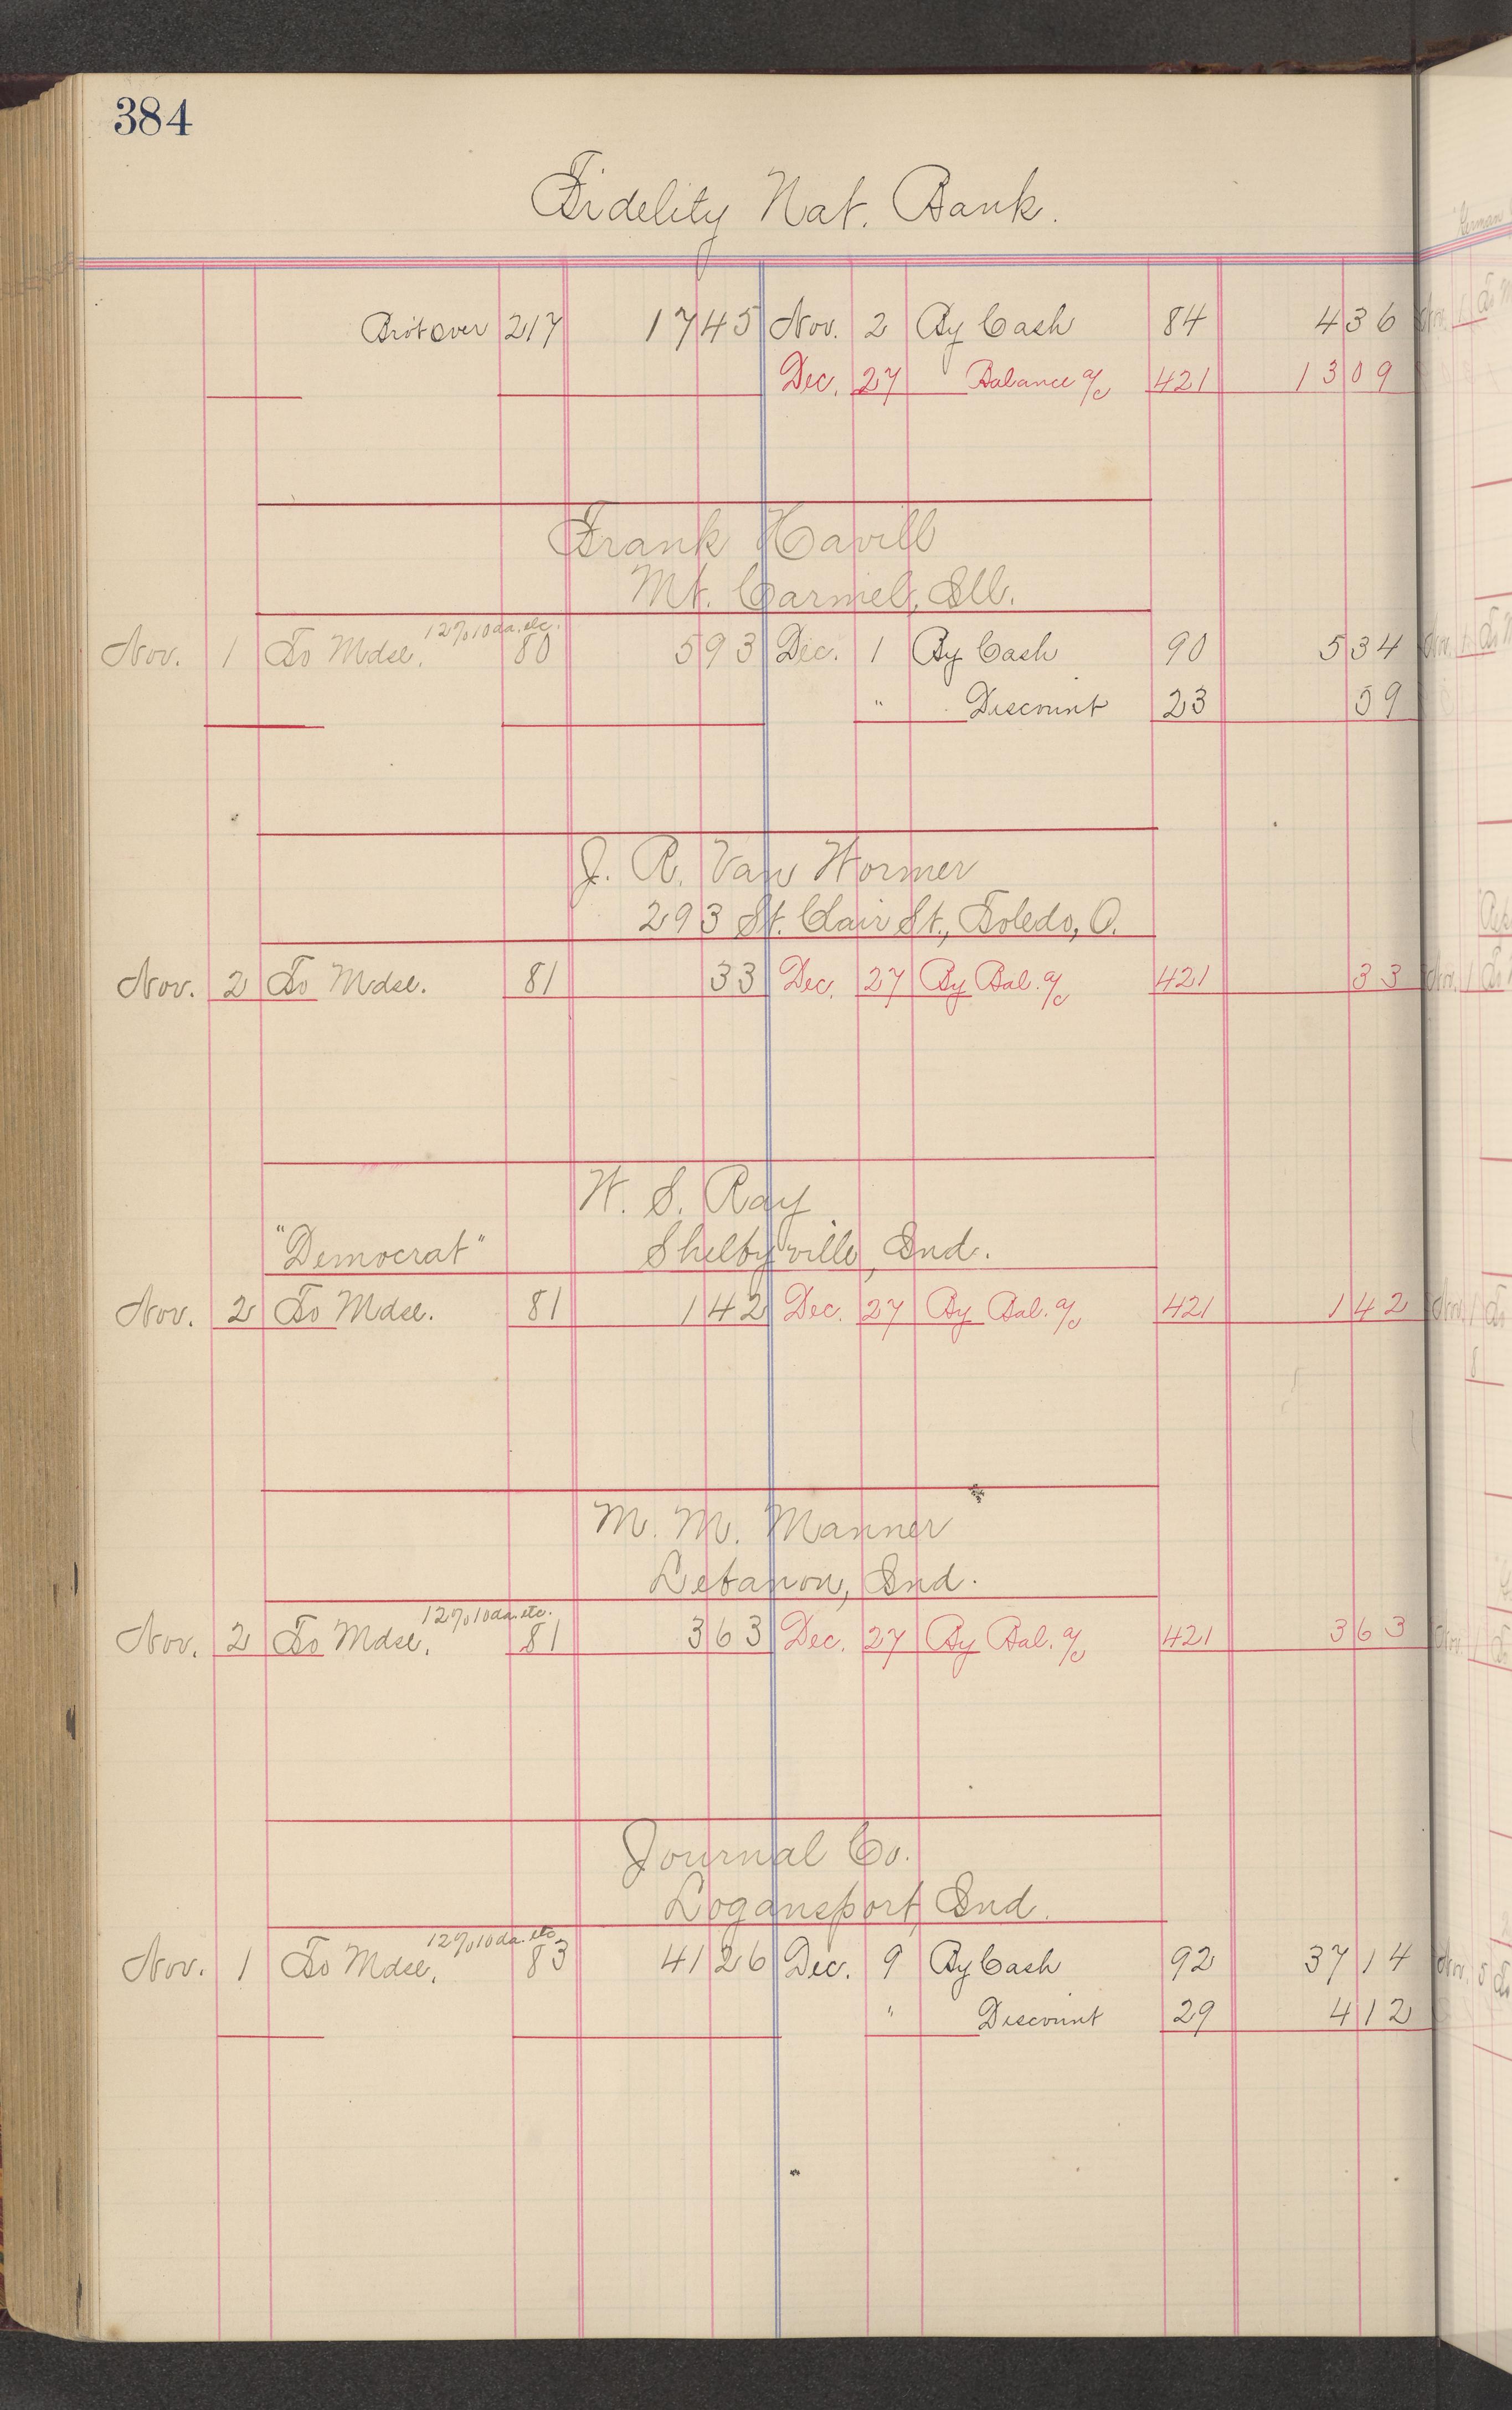 384
Fidelity Nat. Bank.
Bro't over 217 17 45 Nov. 2 By Cash 84 4 36
Dec. 27 Balance a/c 421 13 09
Frank Havill
Mt. Carmel, Ill.
12% 10 da. etc.
Nov. 1 To Mdse. 80 5 93 Dec. 1 By Cash 90 5 34
" Discount 23 59
J. R. Van Wormer
293 St. Clair St., Toledo, O.
Nov. 2 To Mdse. 81 33 Dec. 27 By Bal. a/c 421 33
W. S. Ray
"Democrat" Shelbyville, Ind.
Nov. 2 To Mdse. 81 1 42 Dec. 27 By Bal. a/c 421 1 42
M. M. Manner
Lebanon, Ind.
12% 10 da. etc.
Nov. 2 To Mdse. 81 3 63 Dec. 27 By Bal. a/c 421 3 63
Journal Co.
Logansport, Ind.
12% 10 da. etc.
Nov. 1 To Mdse. 83 41 26 Dec. 9 By Cash 92 37 14
" Discount 29 4 12